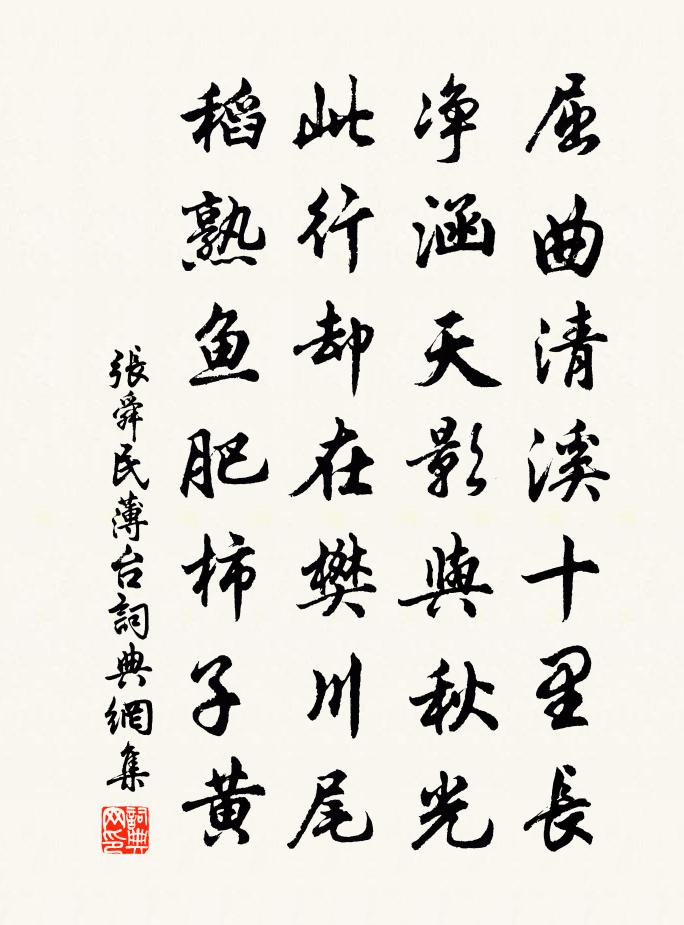 屈曲清溪十里長
净涵天影與秋光
此行却在樊川尾
稻熟魚肥柿子黄
張舜民薄台詞典網集
詞典網印